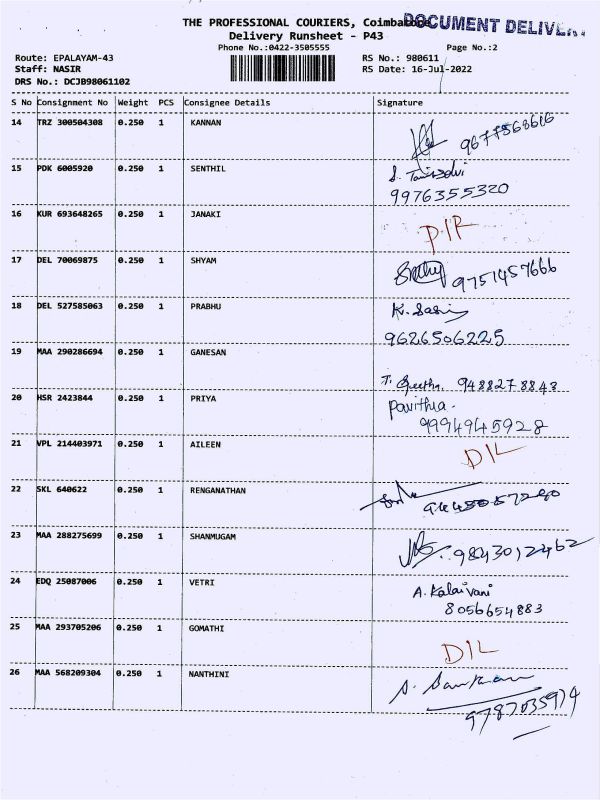 THE PROFESSIONAL COURIERS, Coimbatore
DOCUMENT DELIVERY
Delivery Runsheet - P43
Phone No.:0422-3505555
Page No.:2
Route: EPALAYAM-43
RS No.: 980611
Staff: NASIR
RS Date: 16-Jul-2022
DRS No.: DCJB98061102
S No Consignment No Weight PCS Consignee Details Signature
14 TRZ 300504308 0.250 1 KANNAN
9677568616
15 PDK 6005920 0.250 1 SENTHIL
9976355320
16 KUR 693648265 0.250 1 JANAKI
D/R
17 DEL 70069875 0.250 1 SHYAM
9751457666
18 DEL 527585063 0.250 1 PRABHU K. Sasi
9626506225
19 MAA 290286694 0.250 1 GANESAN
T. Geetha. 9488278843
20 HSR 2423844 0.250 1 PRIYA Pavithra.
9994945928
21 VPL 214403971 0.250 1 AILEEN
D/L
22 SKL 640622 0.250 1 RENGANATHAN
23 MAA 288275699 0.250 1 SHANMUGAM
9843012462
24 EDQ 25087006 0.250 1 VETRI A. Kalaivani
8056654883
25 MAA 293705206 0.250 1 GOMATHI
D/L
26 MAA 568209304 0.250 1 NANTHINI S. Sankaran
9787035974